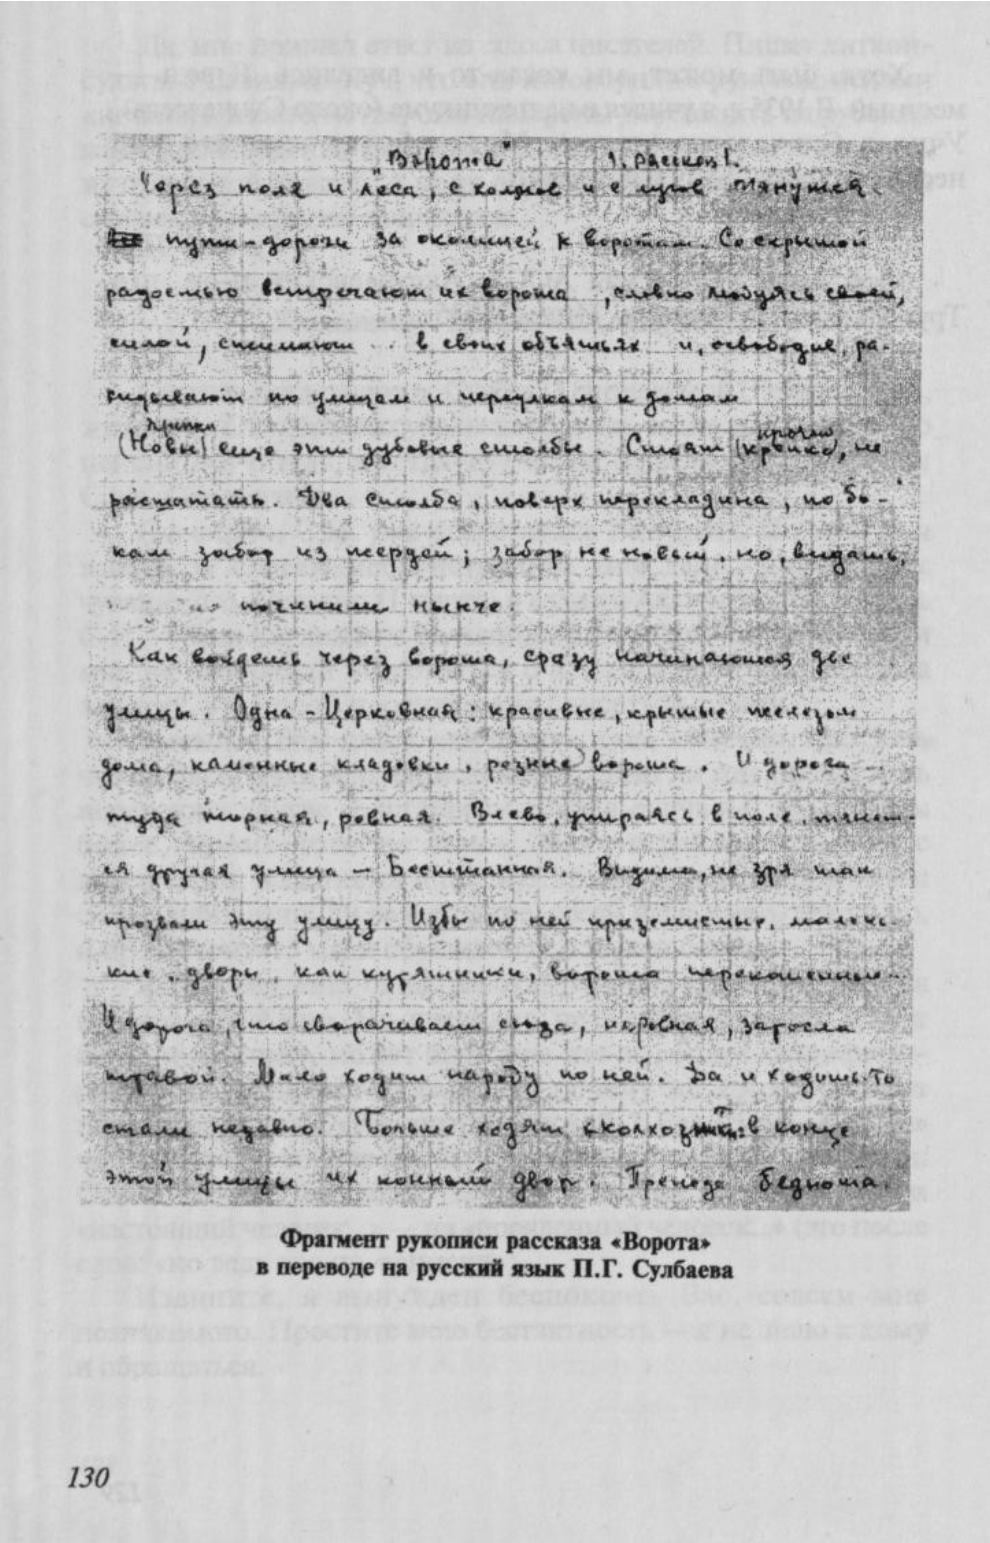 "Ворота" 1. рассказ 1.
Через поля и леса, с холмов и с лугов тянутся
пути-дороги за околицей к воротам. Со скрытой
радостью встречают их ворота, словно любуясь своей,
силой, сжимают в своих объятьях и, освободив, ра-
скидывают по улицам и переулкам к домам
крепки прочно
(Новы) еще эти дубовые столбы. Стоят (крепко), не
расшатать. Два столба, поверх перекладина, по бо-
кам забор из жердей; забор не новый, но, видать,
починили нынче.
Как войдешь через ворота, сразу начинаются две
улицы. Одна - Церковная: красивые, крытые железом
дома, каменные кладовки, резные ворота. И дорога
туда торная, ровная. Влево, упираясь в поле, тянет-
ся другая улица — Бесштанная. Видимо, не зря так
прозвали эту улицу. Избы по ней приземистые, малень-
кие, дворы, как курятники, ворота перекошенные
И дорога, что сворачивает сюда, неровная, заросла
травой. Мало ходит народу по ней. Да и ходить-то
стали недавно. Больше ходят в конце
этой улицы их конный двор. Прежде беднота.
Фрагмент рукописи рассказа «Ворота»
в переводе на русский язык П.Г. Сулбаева
130